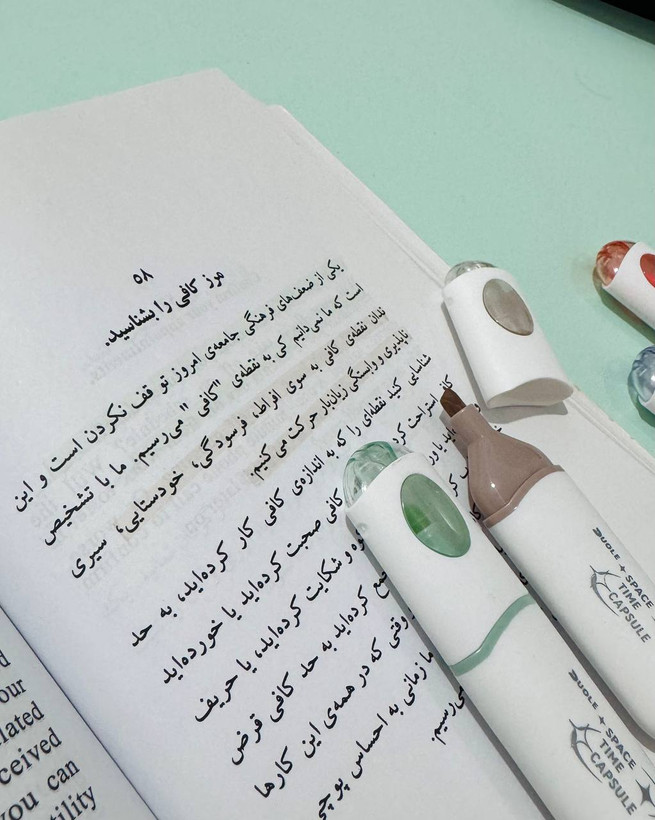 ۵۸
مرز کافی را بشناسید.
یکی از ضعف‌های فرهنگی جامعه‌ی امروز تو قف نکردن است و این
است که ما نمی‌دانیم کی به نقطه‌ی "کافی" می‌رسیم. ما با تشخیص
ندان نقطه‌ی کافی به سوی افراط، فرسودگی، خودستایی، سیری
ناپذیری و وابستگی زیان‌بار حرکت می‌کنیم.
شناسایی کنید نقطه‌ای را که به اندازه‌ی کافی کار کرده‌اید، به حد
کافی استراحت کافی صحبت کرده‌اید یا خورده‌اید
و شکایت کرده‌اید، یا حریف
کرده‌اید به حد کافی قرض
وقتی که در همه‌ی این کارها
ما زمانی به احساس پوچی
می‌رسیم.
our
you can
DUOLE + SPACE
TIME
CAPSULE
DUOLE + SPACE
TIME
CAPSULE